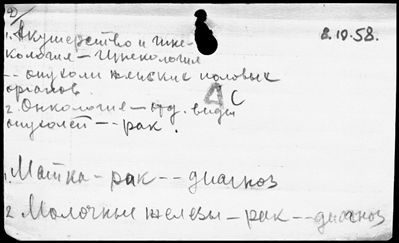 2)
8.10.58.
1. Акушерство и гине-
кология – Гинекология
-- опухоли женских половых
органов.
ДС
2. Онкология – отд. виды
опухолей -- рак.
1. Матка – рак -- диагноз
2 Молочные железы – рак -- диагноз